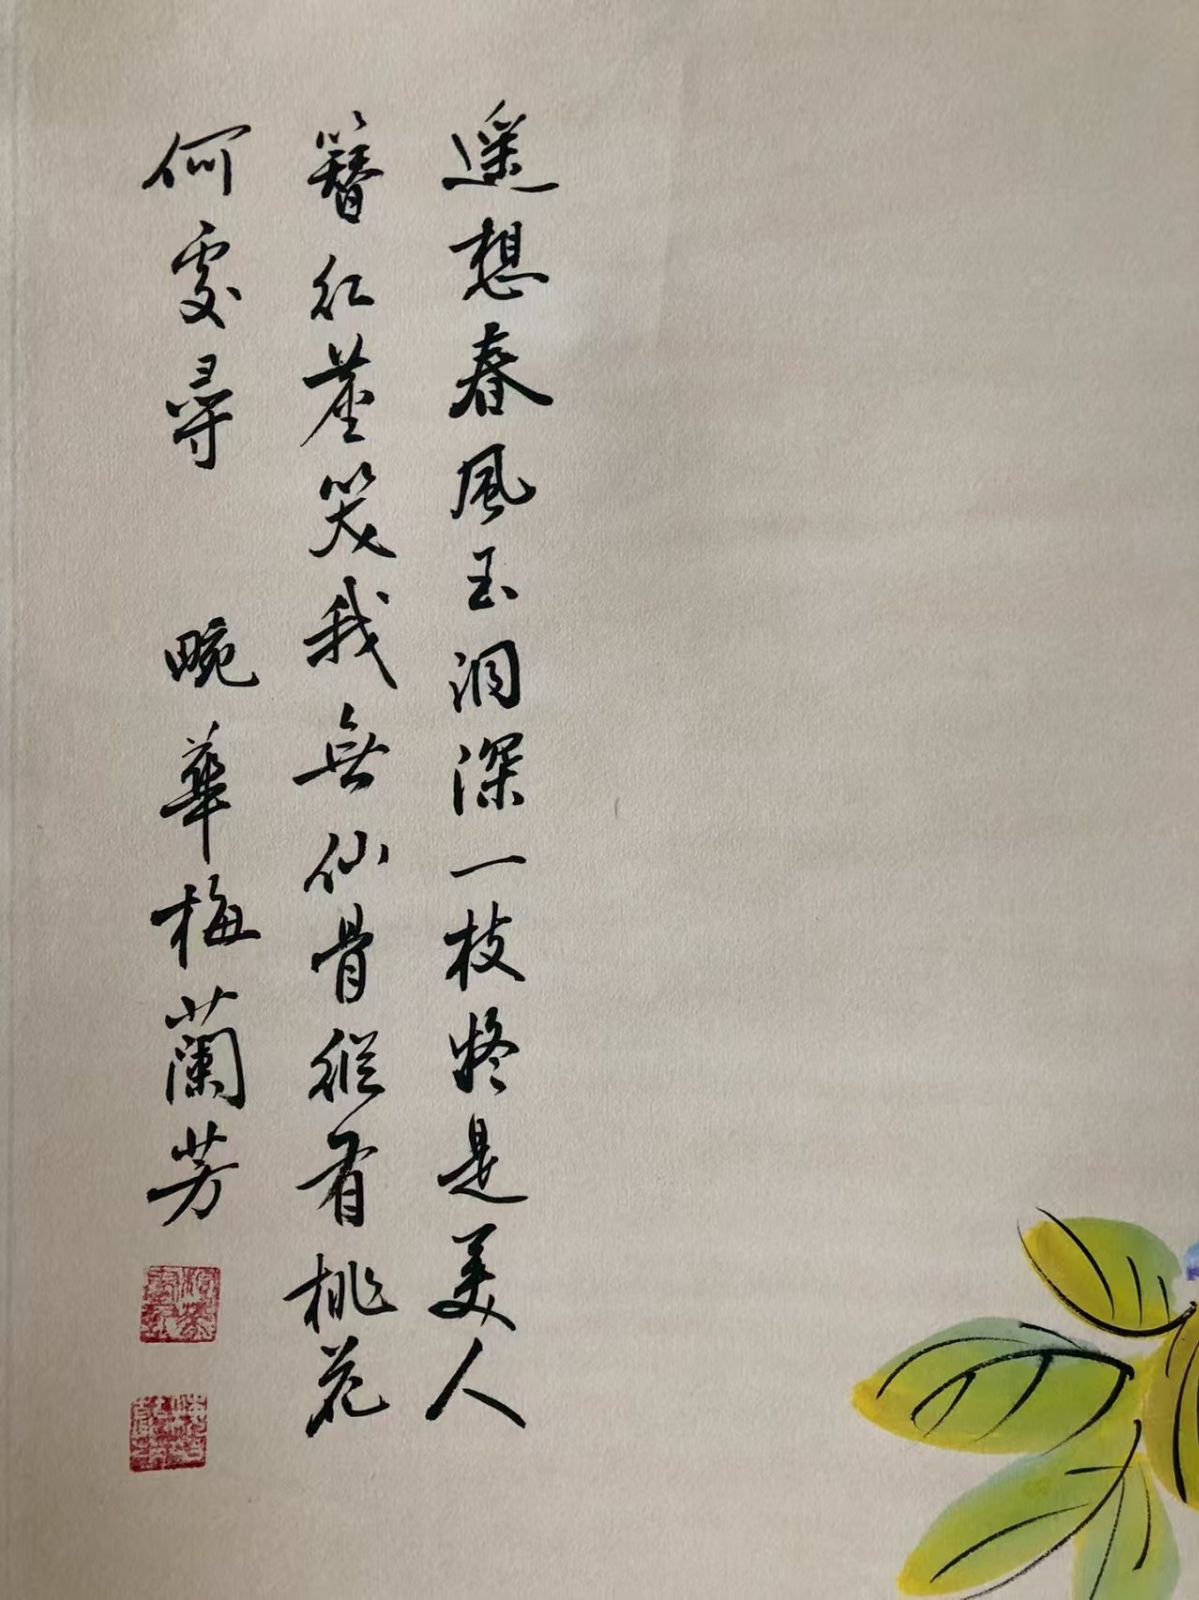 遥想春風玉洞深一枝終是美人
簪紅萼笑我無仙骨縱有桃花
何處尋 畹華梅蘭芳